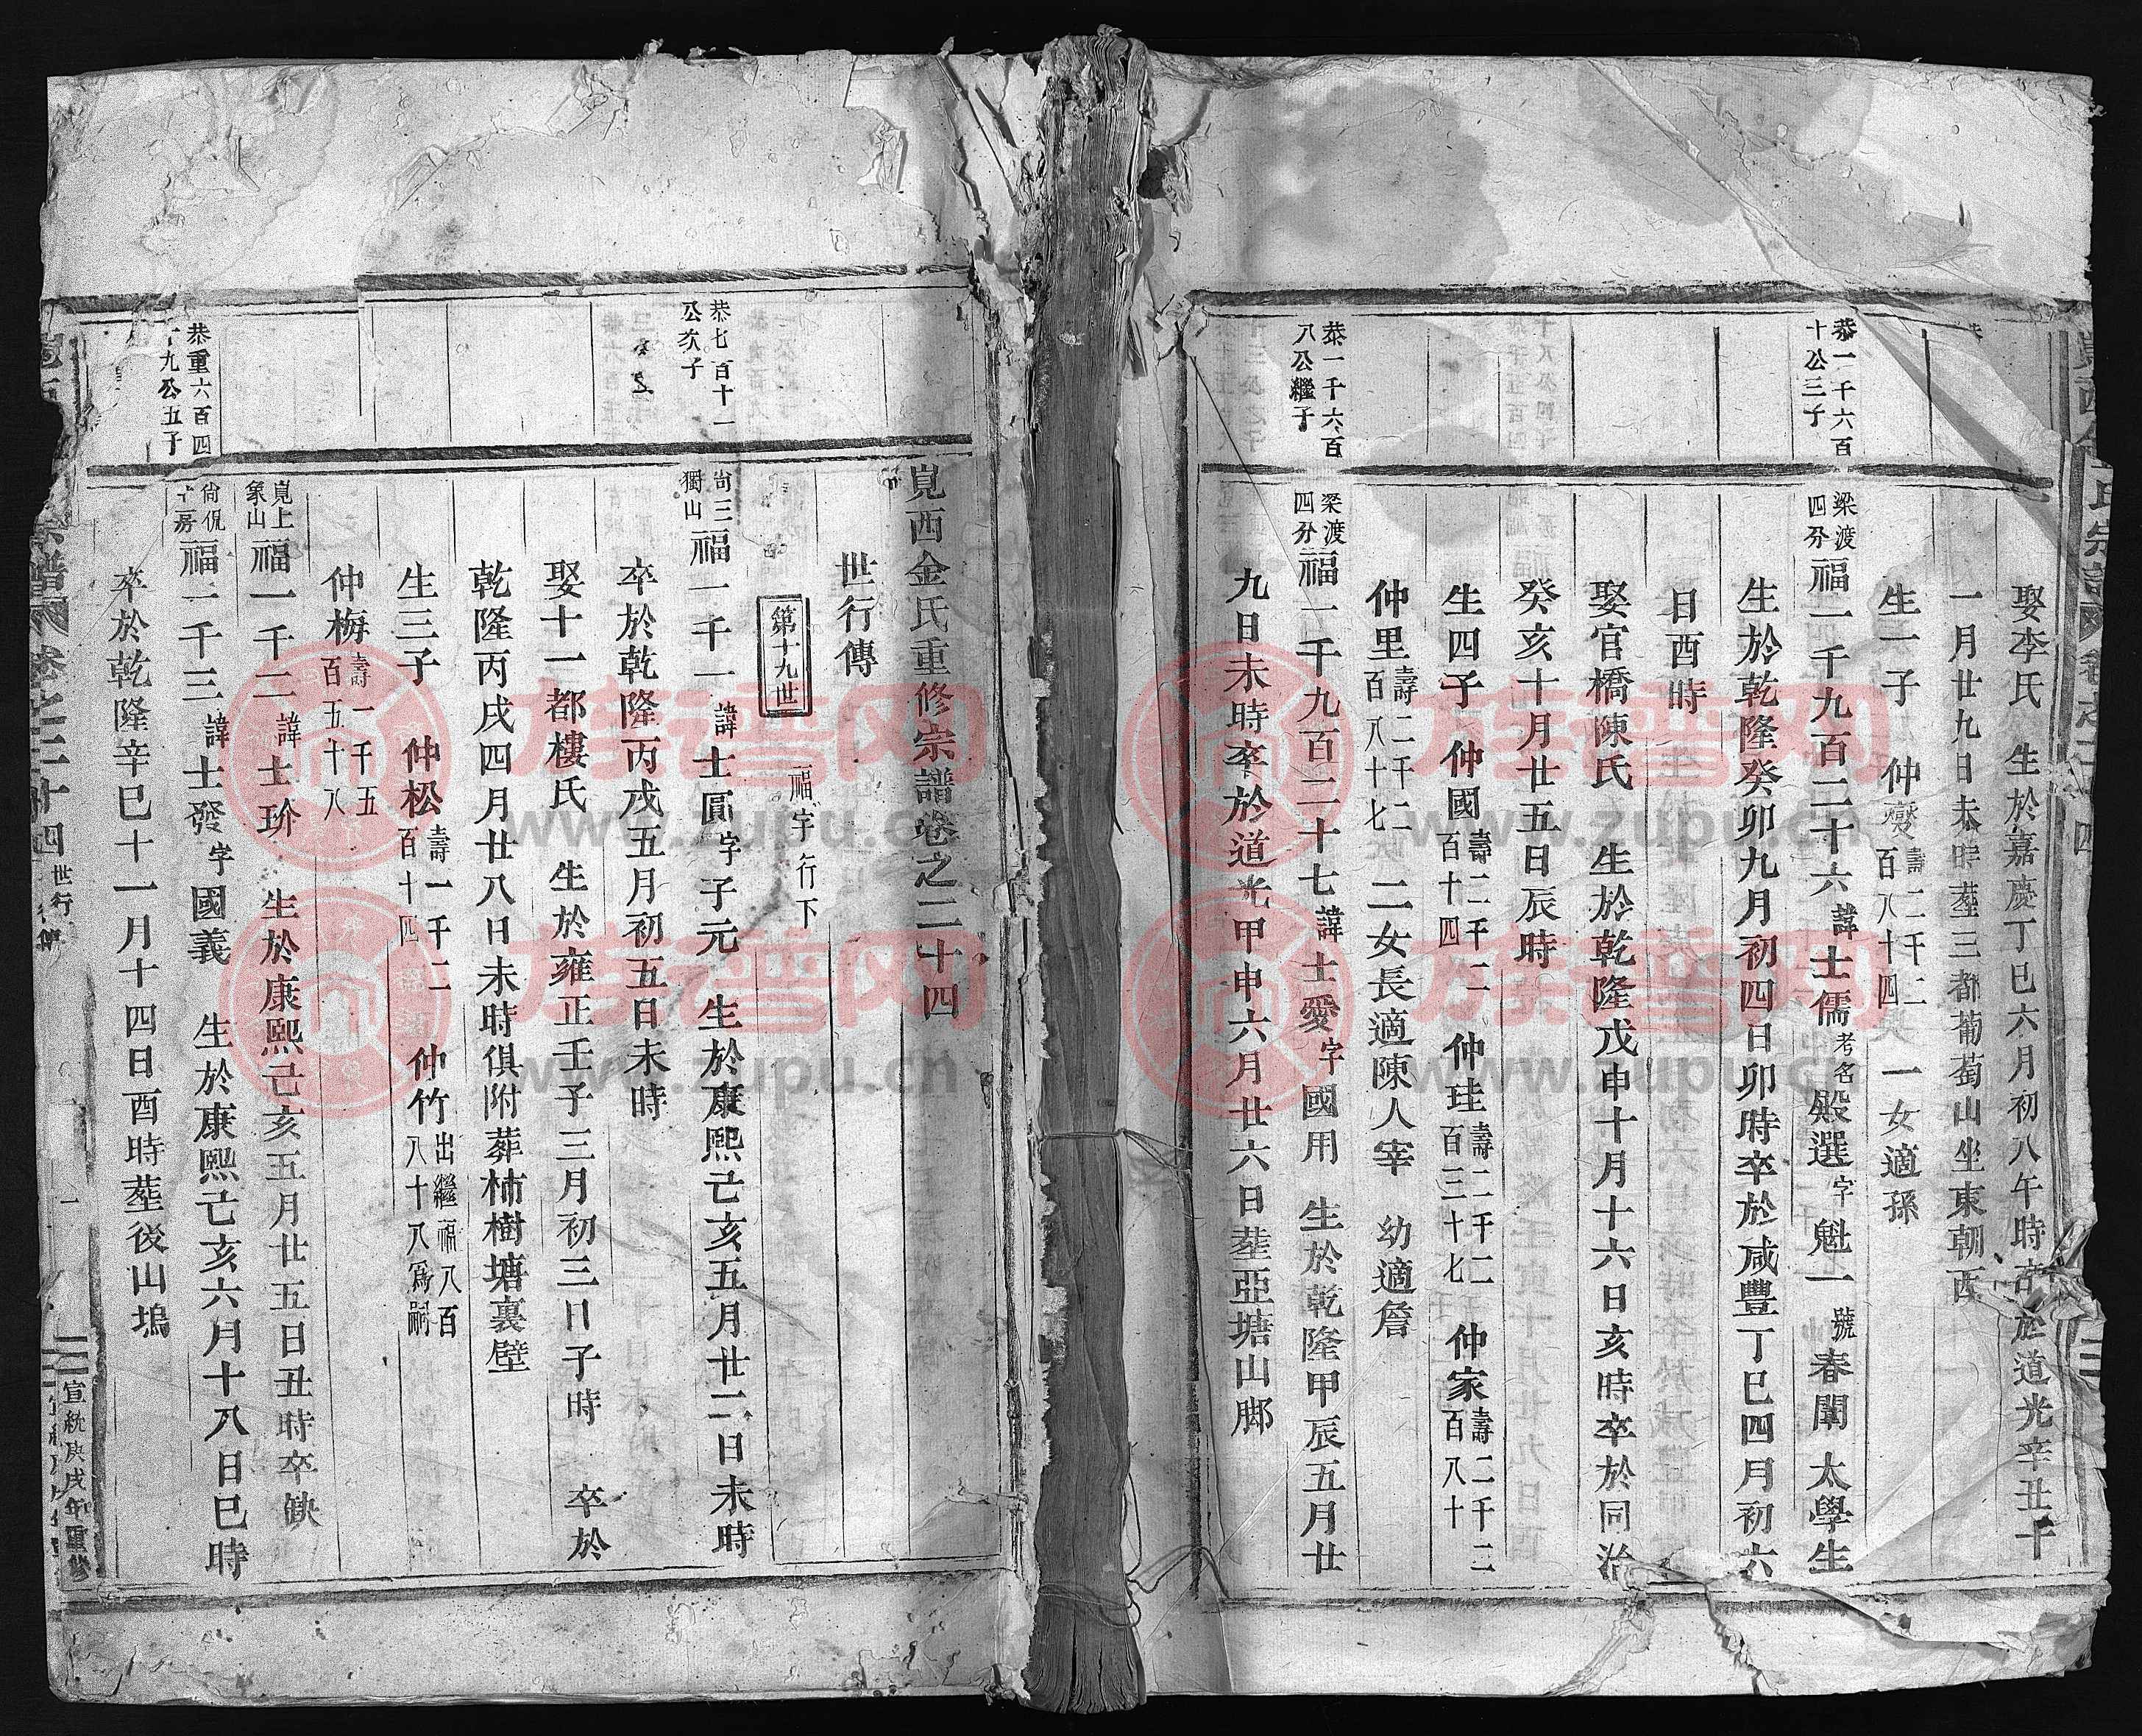 娶李氏 生於嘉慶丁巳六月初八午時卒於道光辛丑十
一月廿九日未時塟三都葡萄山坐東朝西
生一子 仲燮壽二千二百八十四 一女適孫
恭一千六百十公三子
梁渡四分福一千九百二十六諱士儒考名殿選字魁一號春闈 太學生
生於乾隆癸卯九月初四日卯時卒於咸豐丁巳四月初六
日酉時
娶官橋陳氏 生於乾隆戊申十月十六日亥時卒於同治
癸亥十月廿五日辰時
生四子 仲國壽二千二百十四 仲珪壽二千二百三十七 仲家壽二千二百八十
仲里壽二千二百八十七 二女長適陳人宰 幼適詹
恭一千六百八公繼子
梁渡四分福一千九百二十七諱士愛字國用 生於乾隆甲辰五月廿
九日未時卒於道光甲申六月廿六日塟亞塘山脚
峴西金氏重修宗譜卷之二十四
世行傳
第十九世 福字行下
恭七百十一公次子
尚三獨山福一千一諱士圓字子元 生於康熙己亥五月廿二日未時
卒於乾隆丙戌五月初五日未時
娶十一都樓氏 生於雍正壬子三月初三日子時 卒於
乾隆丙戌四月廿八日未時俱附葬柿樹塘裏壁
生三子 仲松壽一千二百十四 仲竹出繼福八百八十八爲嗣
仲梅壽一千五百五十八
峴上象山福一千二諱士玠 生於康熙己亥五月廿五日丑時卒缺
恭重六百四十九公五子
尙侃十房福一千三諱士發字國義 生於康熙己亥六月十八日巳時
卒於乾隆辛巳十一月十四日酉時塟後山塢
宗譜 卷之二十四 世行傳 一 宣統庚戌年重修
族谱网
www.zupu.cn
族谱网
www.zupu.cn
族谱网
www.zupu.cn
族谱网
www.zupu.cn